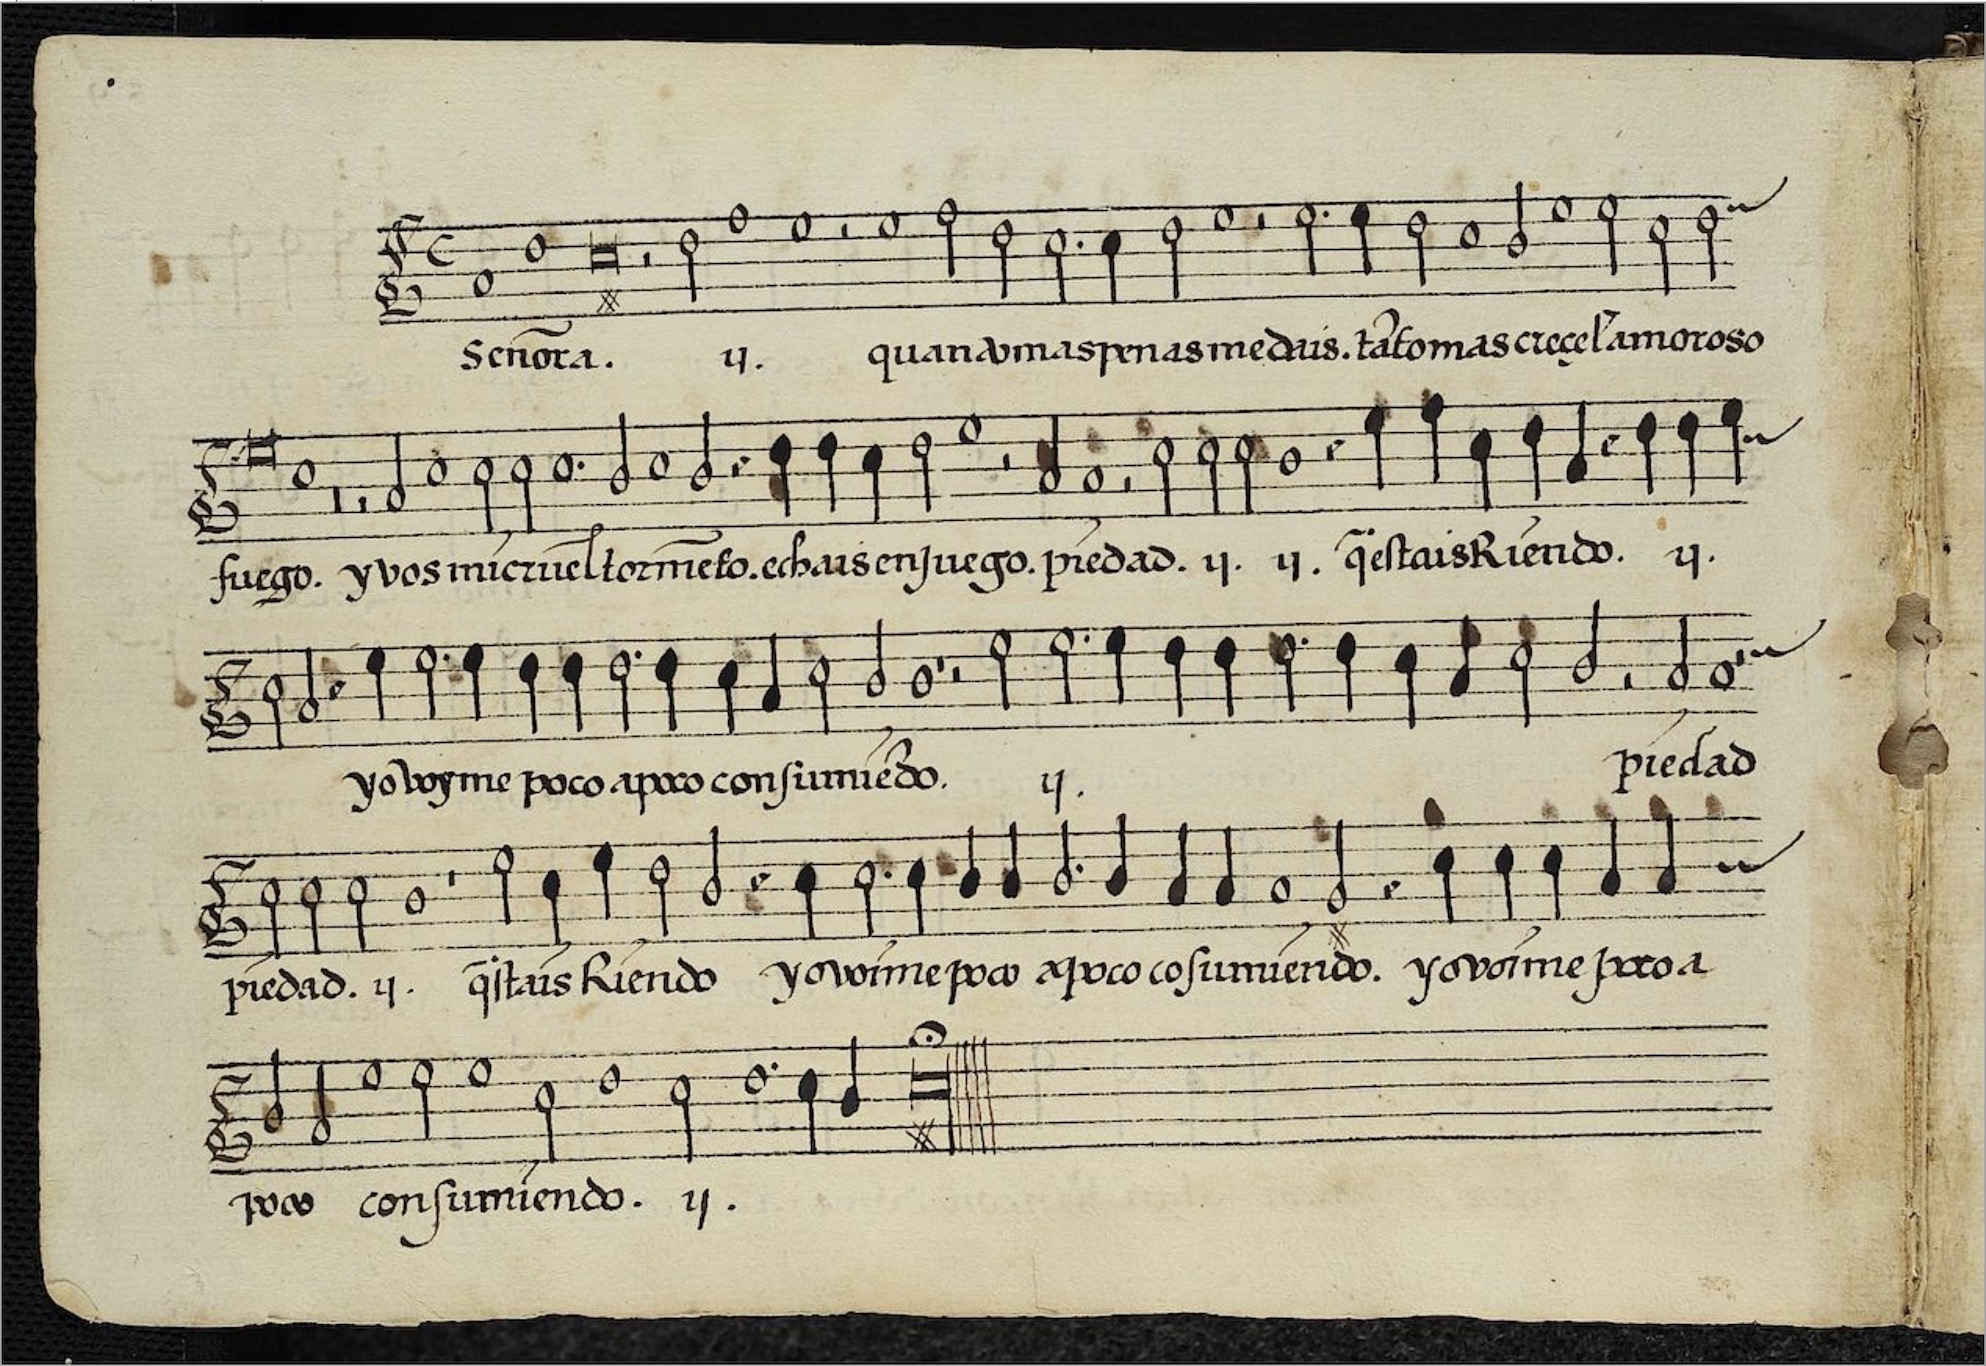 Señora. ij. quanto mas penas me dais. tãto mas creçe l'amoroso
fuego. y vos mi cruel tormẽto. echais en juego. piedad. ij. ij. q̃ estais Riendo. ij.
yo voyme poco a poco consumiẽdo. ij. piedad
piedad. ij. q̃stais Riendo yo voime poco a poco cosumiendo. yo voime poco a
poco consumiendo. ij.